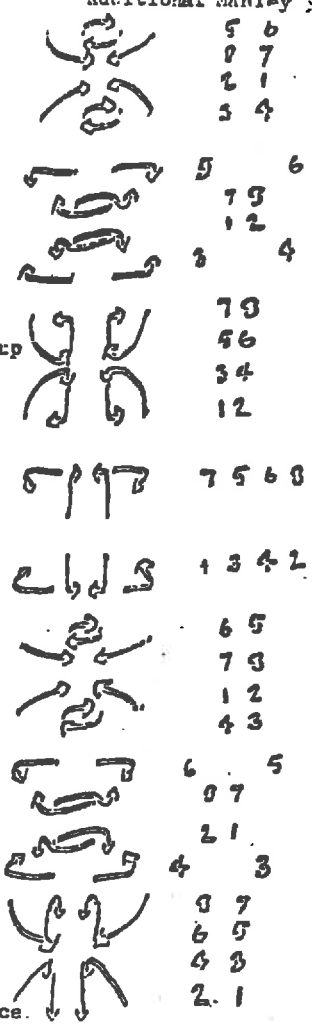 Additional
5 6
8 7
2 1
3 4
5 6
7 8
1 2
3 4
7 8
rp 5 6
3 4
1 2
7 5 6 8
1 3 4 2
6 5
7 8
1 2
4 3
6 5
8 7
2 1
4 3
8 7
6 5
4 3
2 1
ce.